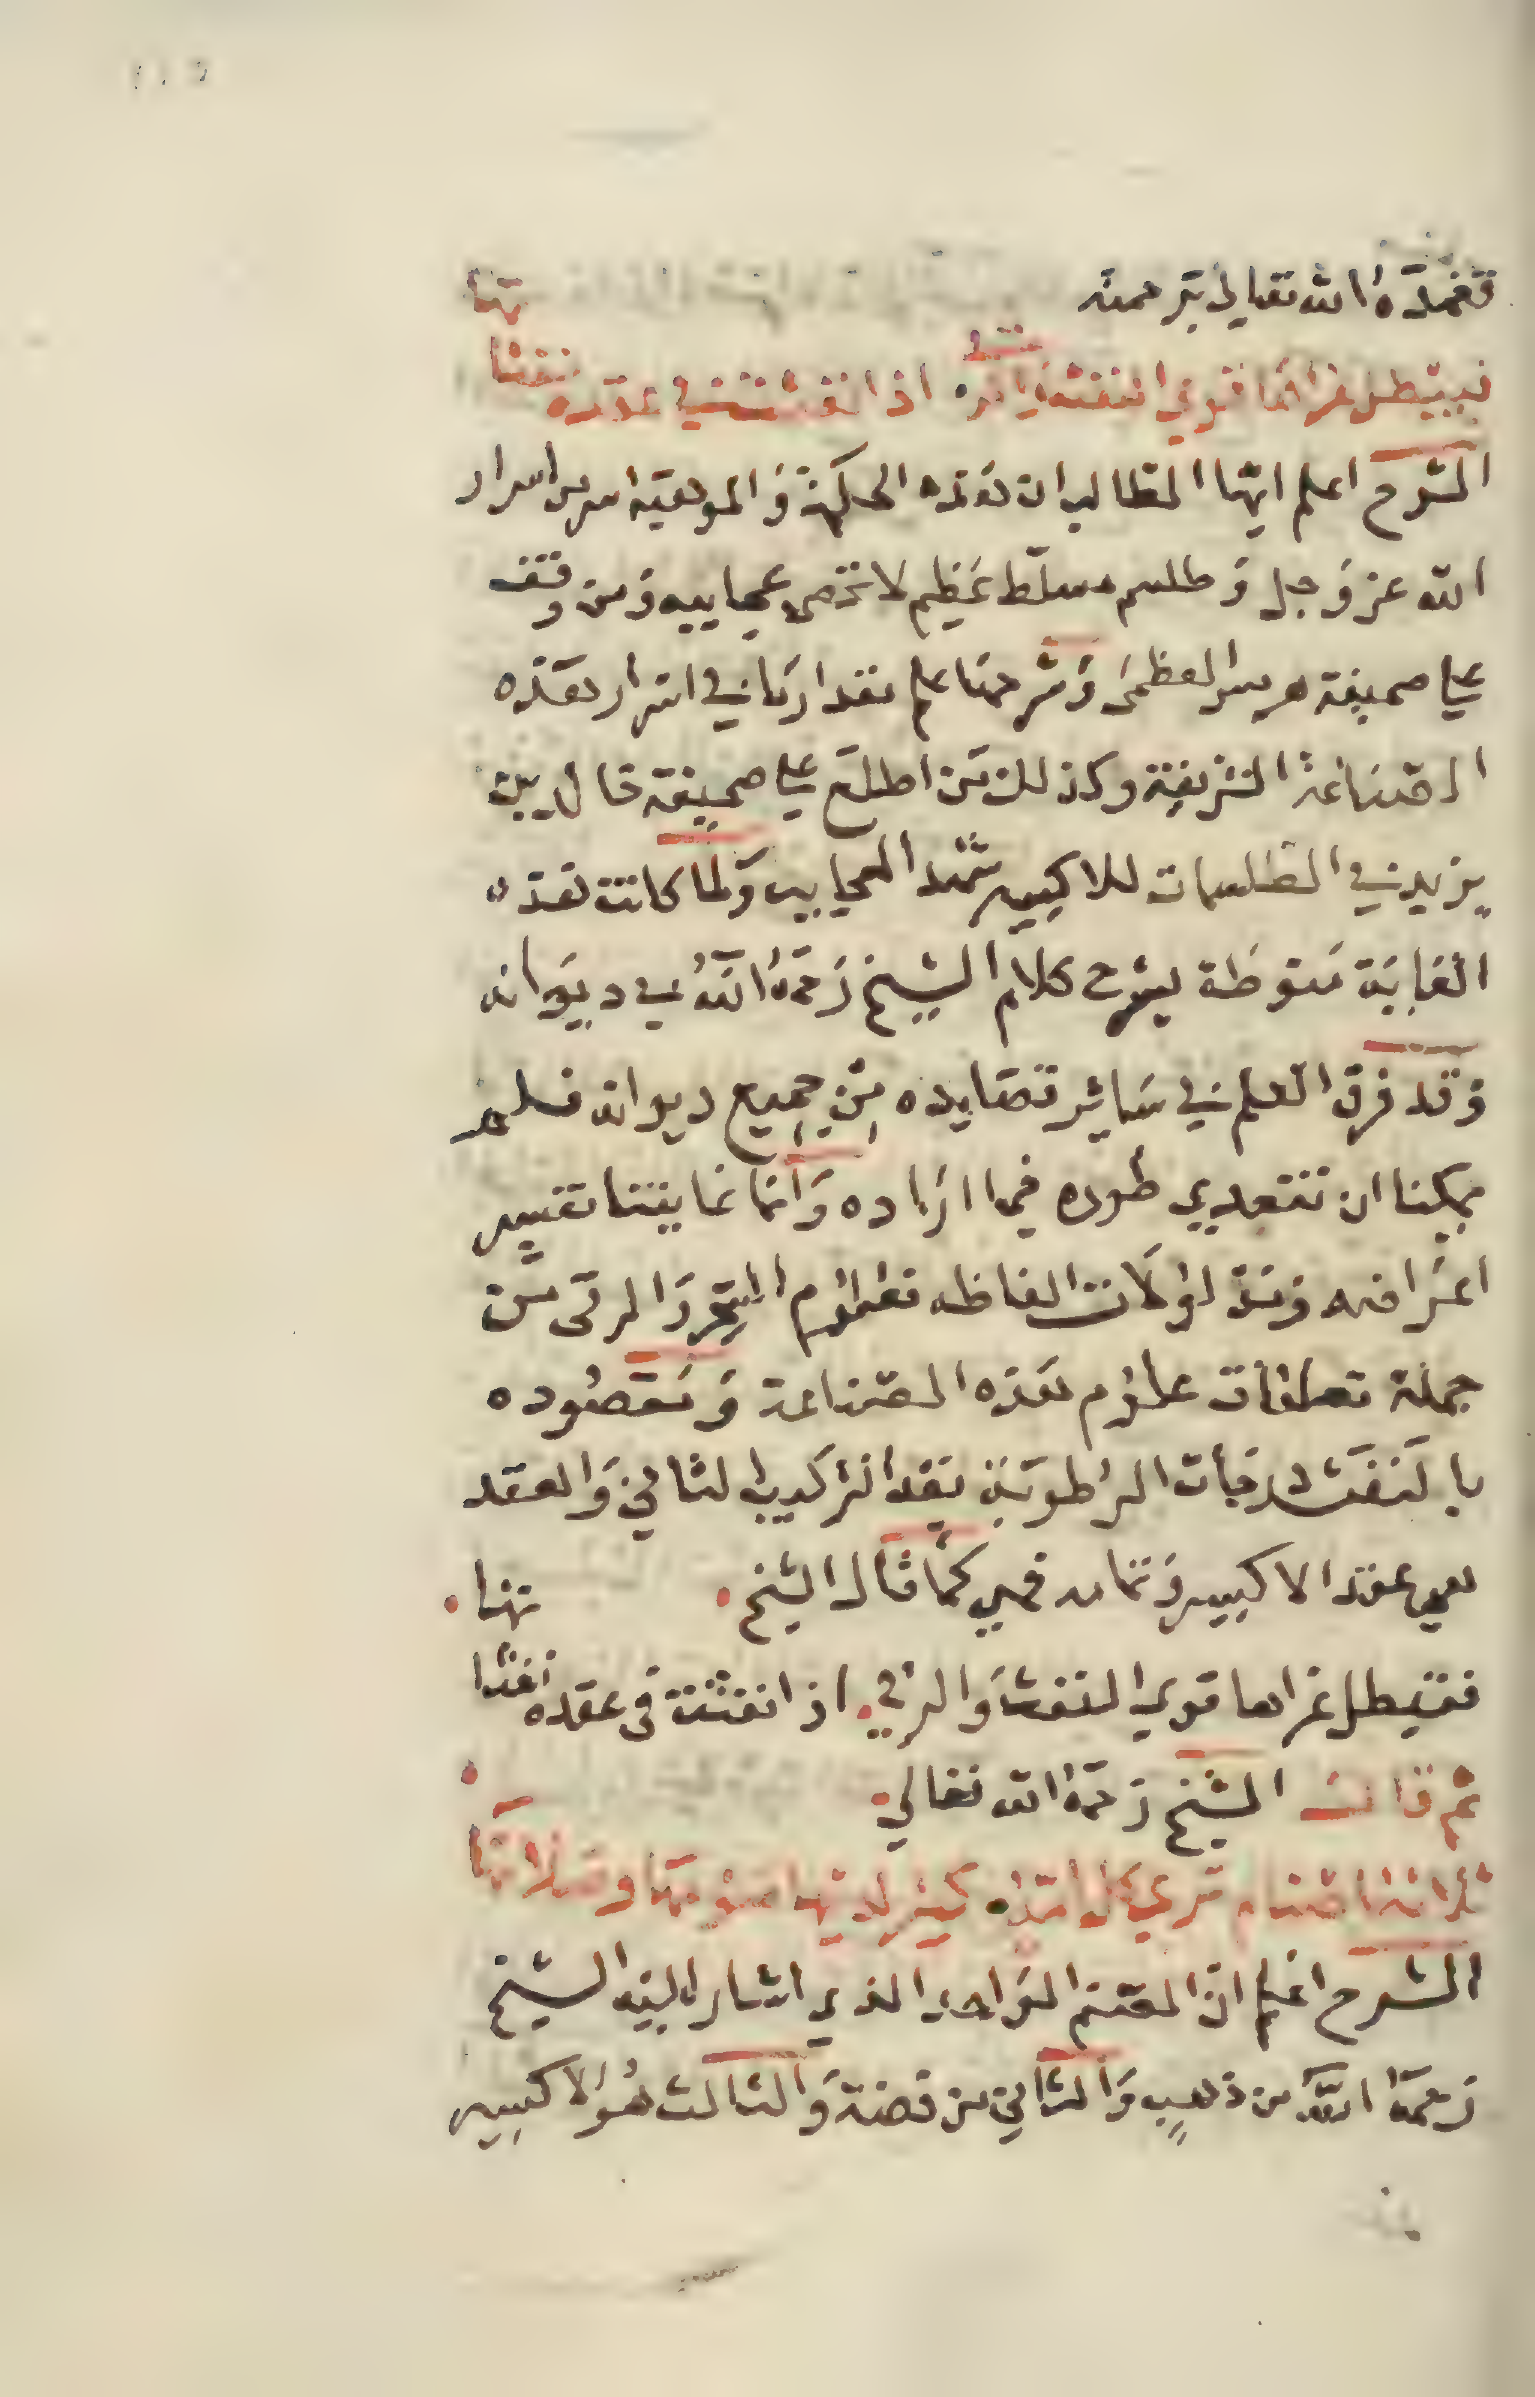 تغمده الله تعالى برحمته
فيبطل غراما قوي النفث والرقى اذا نفثت في عقده نفثاتها
الشرح اعلم ايها الطالب ان هذه الحكمة والموهبة سر من اسرار
الله عز وجل وطلسم مسلط عظيم لا تحصى عجايبه ومن وقف
على صحيفة هرمس العظمى وشرحنا علم مقدار ما في اسرار هذه
الصناعة الشريفة وكذلك من اطلع على صحيفة خالد بن
يزيد في الطلسمات للاكسير شهد العجايب ولما كانت هذه
الغاية منوطة بشرح كلام الشيخ رحمه الله في ديوانه
وقد فرق العلم في سائر قصايده من جميع ديوانه فلم
يمكنا ان نتعدى طوره فيما اراده وانما غايتنا تفسير
اغراضه
جملة تعلقات علوم هذه الصناعة ومقصوده
بالنفث دفعات الرطوبة بعد التركيب الثاني والعقد
هي عقد الاكسير وتمامه فهي كما قال الشيخ
فتبطل غراما قوي النفث والرقى اذا نفثت في عقده نفثاتها
ثم قال الشيخ رحمه الله تعالى
ثلاثة اصنام ترى كل امة كثير لديها صومها وصلاتها
الشرح اعلم ان الصنم الواحد الذي اشار اليه الشيخ
رحمه الله من ذهب والثاني من فضة والثالث هو الاكسير